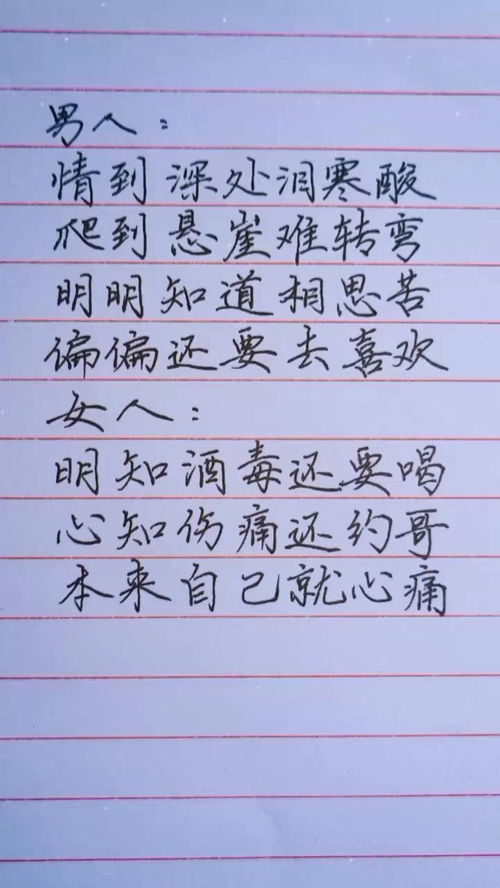 男人：
情到深处泪寒酸
爬到悬崖难转弯
明明知道相思苦
偏偏还要去喜欢
女人：
明知酒毒还要喝
心知伤痛还约哥
本来自己就心痛